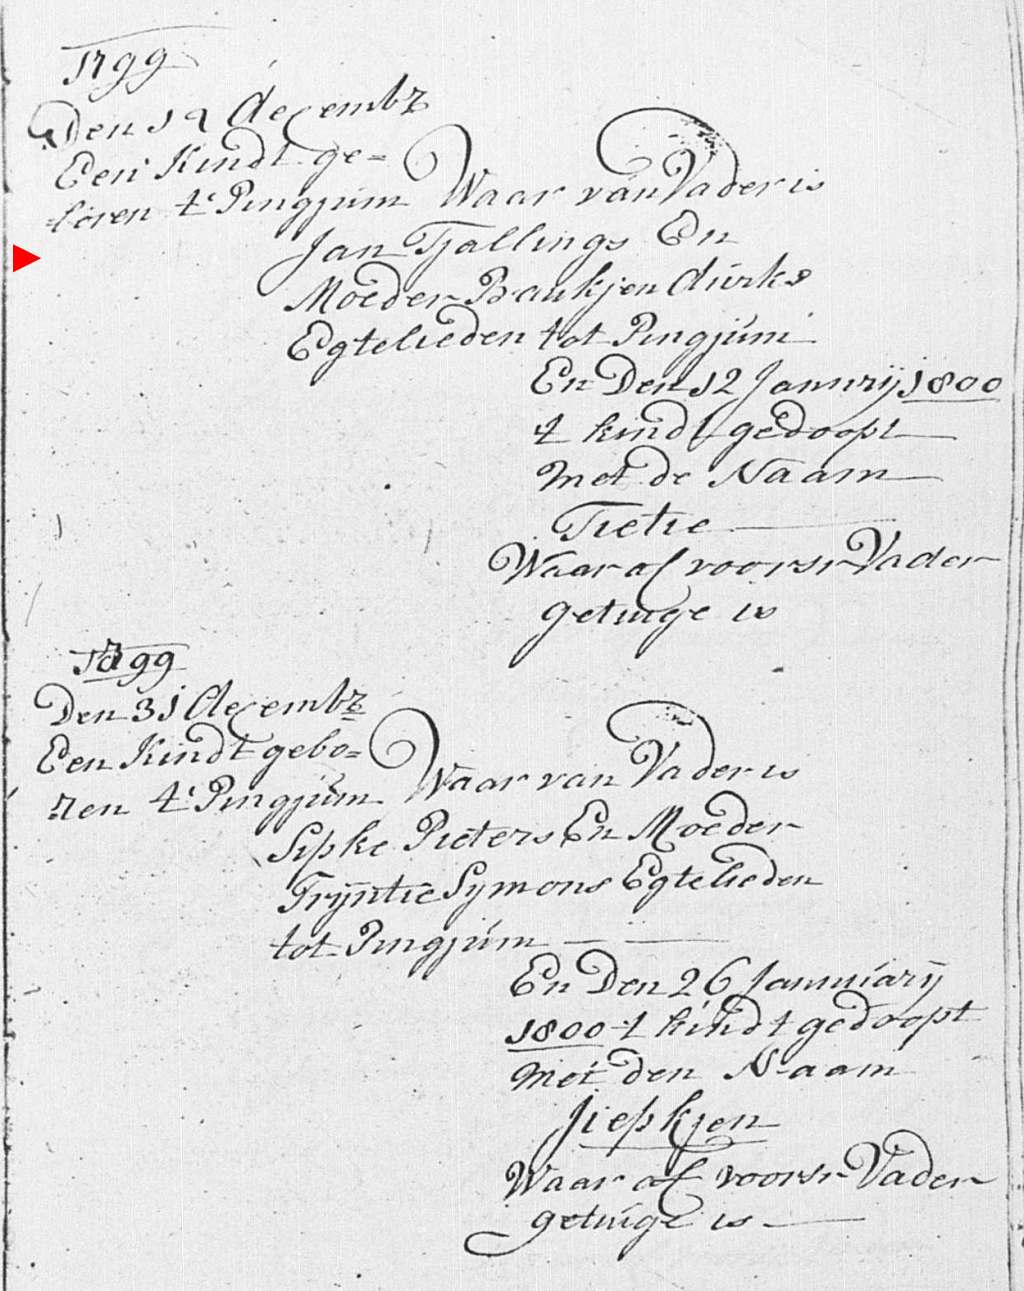 1799
Den 19 decembr
Een Kindt ge=
boren t' Pingjum Waar van Vader is
Jan Tjallings En
Moeder Baukjen dirks
Egtelieden tot Pingjum
En Den 12 Janurij 1800
t kindt gedoopt
Met de Naam
Tietie
Waar of voorsr Vader
getuige is
1799
Den 31 decembr
Een Kindt gebo=
ren t' Pingjum Waar van Vader is
Sipke Pieters En Moeder
Trijntie Symons Egtelieden
tot Pingjum
En Den 26 Januiarij
1800 t kindt gedoopt
Met den Naam
Jiepkjen
Waar of voorsr Vader
getuige is